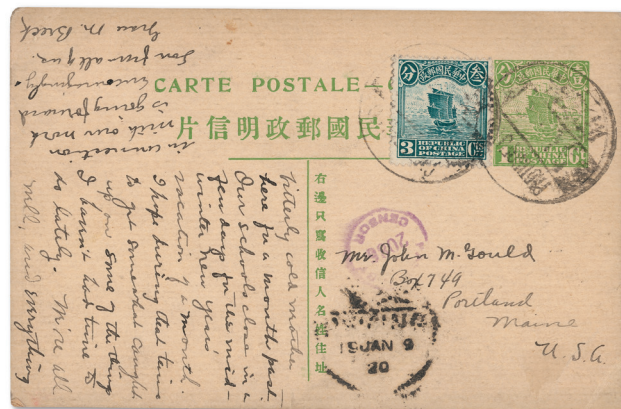 CARTE POSTALE—C
片信明政郵國民
右邊只寫收信人名住址
中華民國郵政
分
叁
3
Cts
REPUBLIC
OF CHINA
POSTAGE
中華民國郵政
分
1
Ct
REPUBLIC
OF CHINA
POSTAGE
CENSOR
19 JAN 9
20
Mr. John M. Gould
Box 749
Portland
Maine
U.S.A.
bitterly cold weather
here for a month past.
Our schools close in a
few days for the mid-
winter, new years
vacation of a month.
I hope during that time
to get somewhat caught
up on some of the things
I haven't had time to
do lately. We're all
well, and everything
in connection
with our work
is going forward
encouragingly.